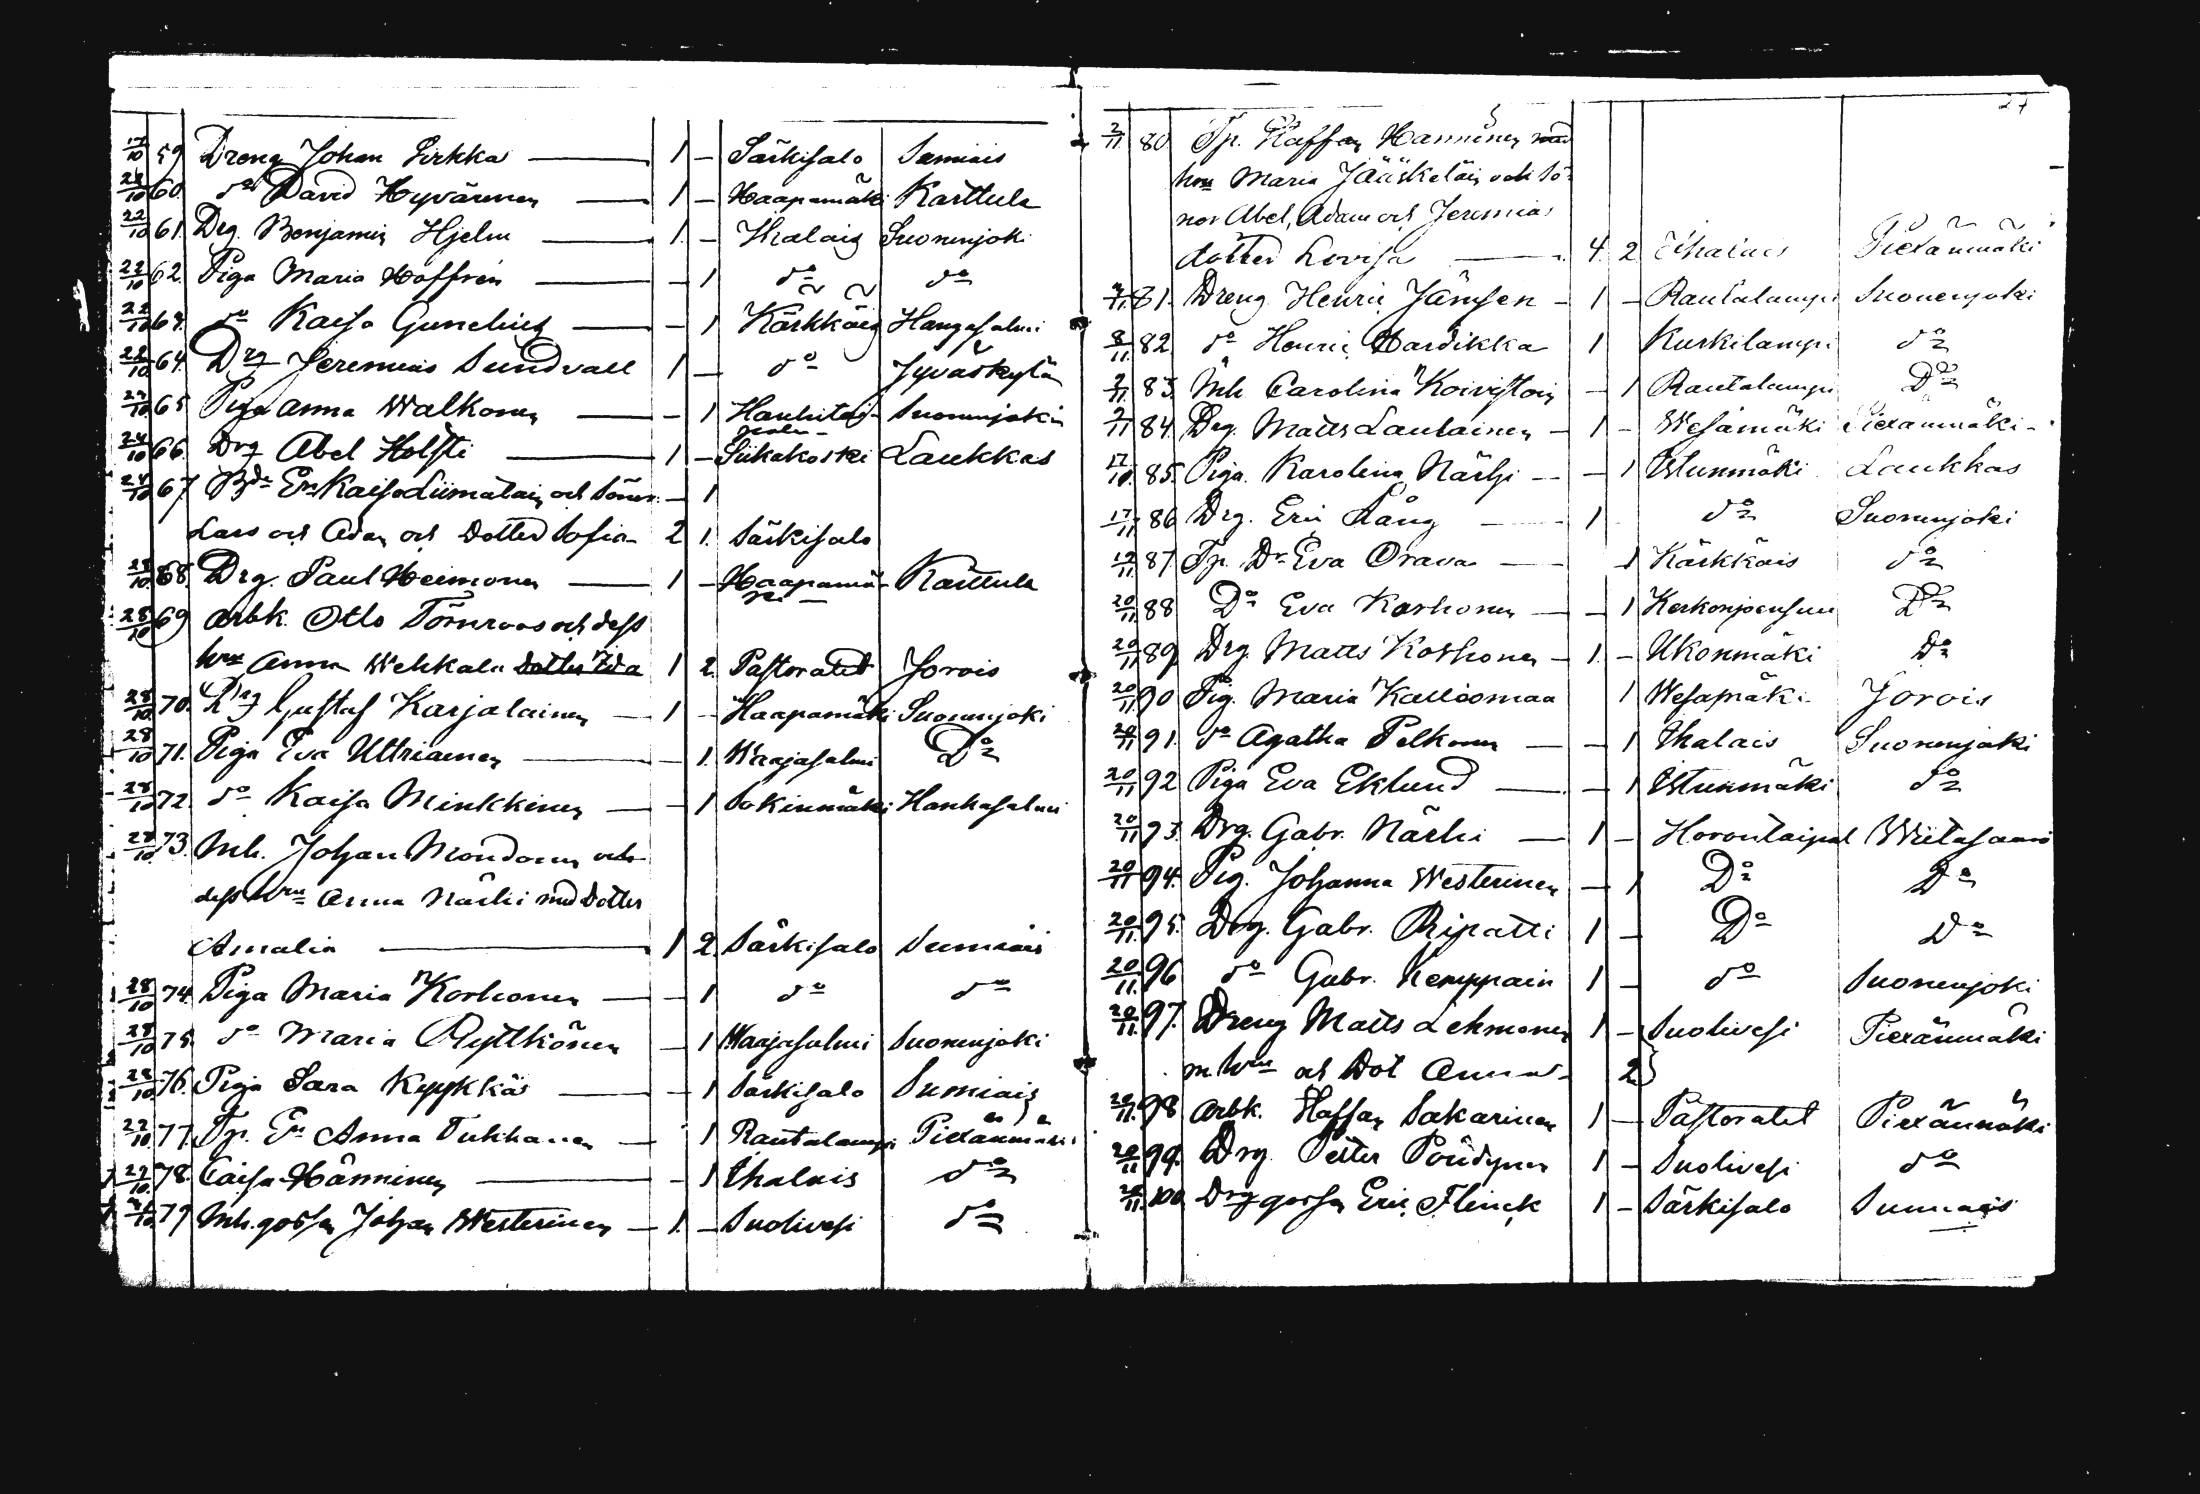 17/10 59. Dreng Johan Pirkka — 1 – Särkisalo Sumiais
22/10 60. do David Hyvärinen — 1 – Haapamäki Karttula
22/10 61. Drg. Benjamin Hjelm — 1. – Ihalais Suonenjoki
22/10 62. Piga Maria Hoffrén — – 1 do do
22/10 63. do Kaisa Gunelius — – 1 Kärkkäis Hangasalmi
22/10 64. Drg Jeremias Sundvall 1 – do Jyväskylä
24/10 65 Piga Anna Walkonen — – 1 Hankitai- Suonenjoki
pale-
24/10 66. Drg Abel Holsti — 1 – Siikakoski Laukkas
24/10 67. Bde En Kaisa Liimatain och Söner – 1
Lars och Adam och Dotter Sofia – 2 1. Särkisalo
28/10 68. Drg. Paul Heimonen — 1 – Haapamä- Karttula
ki –
28/10 69 Arbk. Otto Törnroos och dess
hru Anna Wehkala Dotter Ida 1 2. Pastoratet Jorois
28/10 70. Drg Gustaf Karjalainen — 1 – Haapamäki Suonenjoki
28/10 71. Piga Eva Uttriainen — – 1. Waajasalmi Do
28/10 72. do Kaisa Minkkinen — – 1 Sokinmäki Hankasalmi
28/10 73. Inh. Johan Mondonen och
dess hru Anna Närhi med Dotter
Amalia — 1 2. Särkisalo Sumiais
28/10 74. Piga Maria Korhonen — – 1 do do
28/10 75. do Maria Ryttkönen – 1 Waajasalmi Suonenjoki
28/10 76. Piga Sara Kyykkäs — – 1 Särkisalo Sumiais
29/10 77. Tp. En Anna Tukkanen — 1 Rautalampi Pieksänmäki
29/10 78. Caisa Hänninen — – 1 Ihalais do
/10 79 Inh. gossen Johan Westerinen — 1. – Suolivesi do
27
2/11 80. Tp. Staffan Hänninen med
hru Maria Jääskeläin och Sö-
ner Abel, Adam och Jeremias
dotter Lovisa — 4. 2 Ihalais Pieksänmäki
/11 81. Dreng Henric Jämsen – 1 – Rautalampi Suonenjoki
8/11 82. do Henric Hardikka 1 Kurkilampi do
9/11 83. Inh. Carolina Koivistoin – 1 Rautalampi Do
9/11 84. Drg. Matts Lautainen – 1 – Wesamäki Pieksänmäki –
17/11 85. Piga Karolina Närhi – – 1 Istunmäki Laukkas
17/11 86 Drg. Eric Lång — 1 do Suonenjoki
19/11 87 Tp. Dr Eva Orava — – 1 Kärkkäis do
20/11 88 Do Eva Korhonen — – 1 Kerkonjoensuu Do
20/11 89 Drg. Matts Korhonen – 1. – Ukonmäki Do
20/11 90 Pig. Maria Kalliomaa 1 Wesamäki Jorois
20/11 91. do Agatha Pelkonen — – 1 Ihalais Suonenjoki
20/11 92 Piga Eva Eklund — – 1 Istunmäki do
20/11 93. Drg. Gabr. Närhi — 1 – Horontaipal Wiitasaari
20/11 94. Pig. Johanna Westerinen – 1 Do Do
20/11 95. Drg. Gabr. Ripatti 1 – Do Do
20/11 96 do Gabr. Kemppain 1 – do Suonenjoki
20/11 97. Dreng Matts Lehmonen 1 – Suolivesi Pieksänmäki
m. hru och Dot Anna – 2
20/11 98 Arbk. Staffan Sakarinen 1 – Pastoratet Pieksänmäki
20/11 99. Drg. Petter Pöndynen 1 – Suolivesi do
20/11 100. Drg gossen Eric Flinck 1 – Särkisalo Sumiais